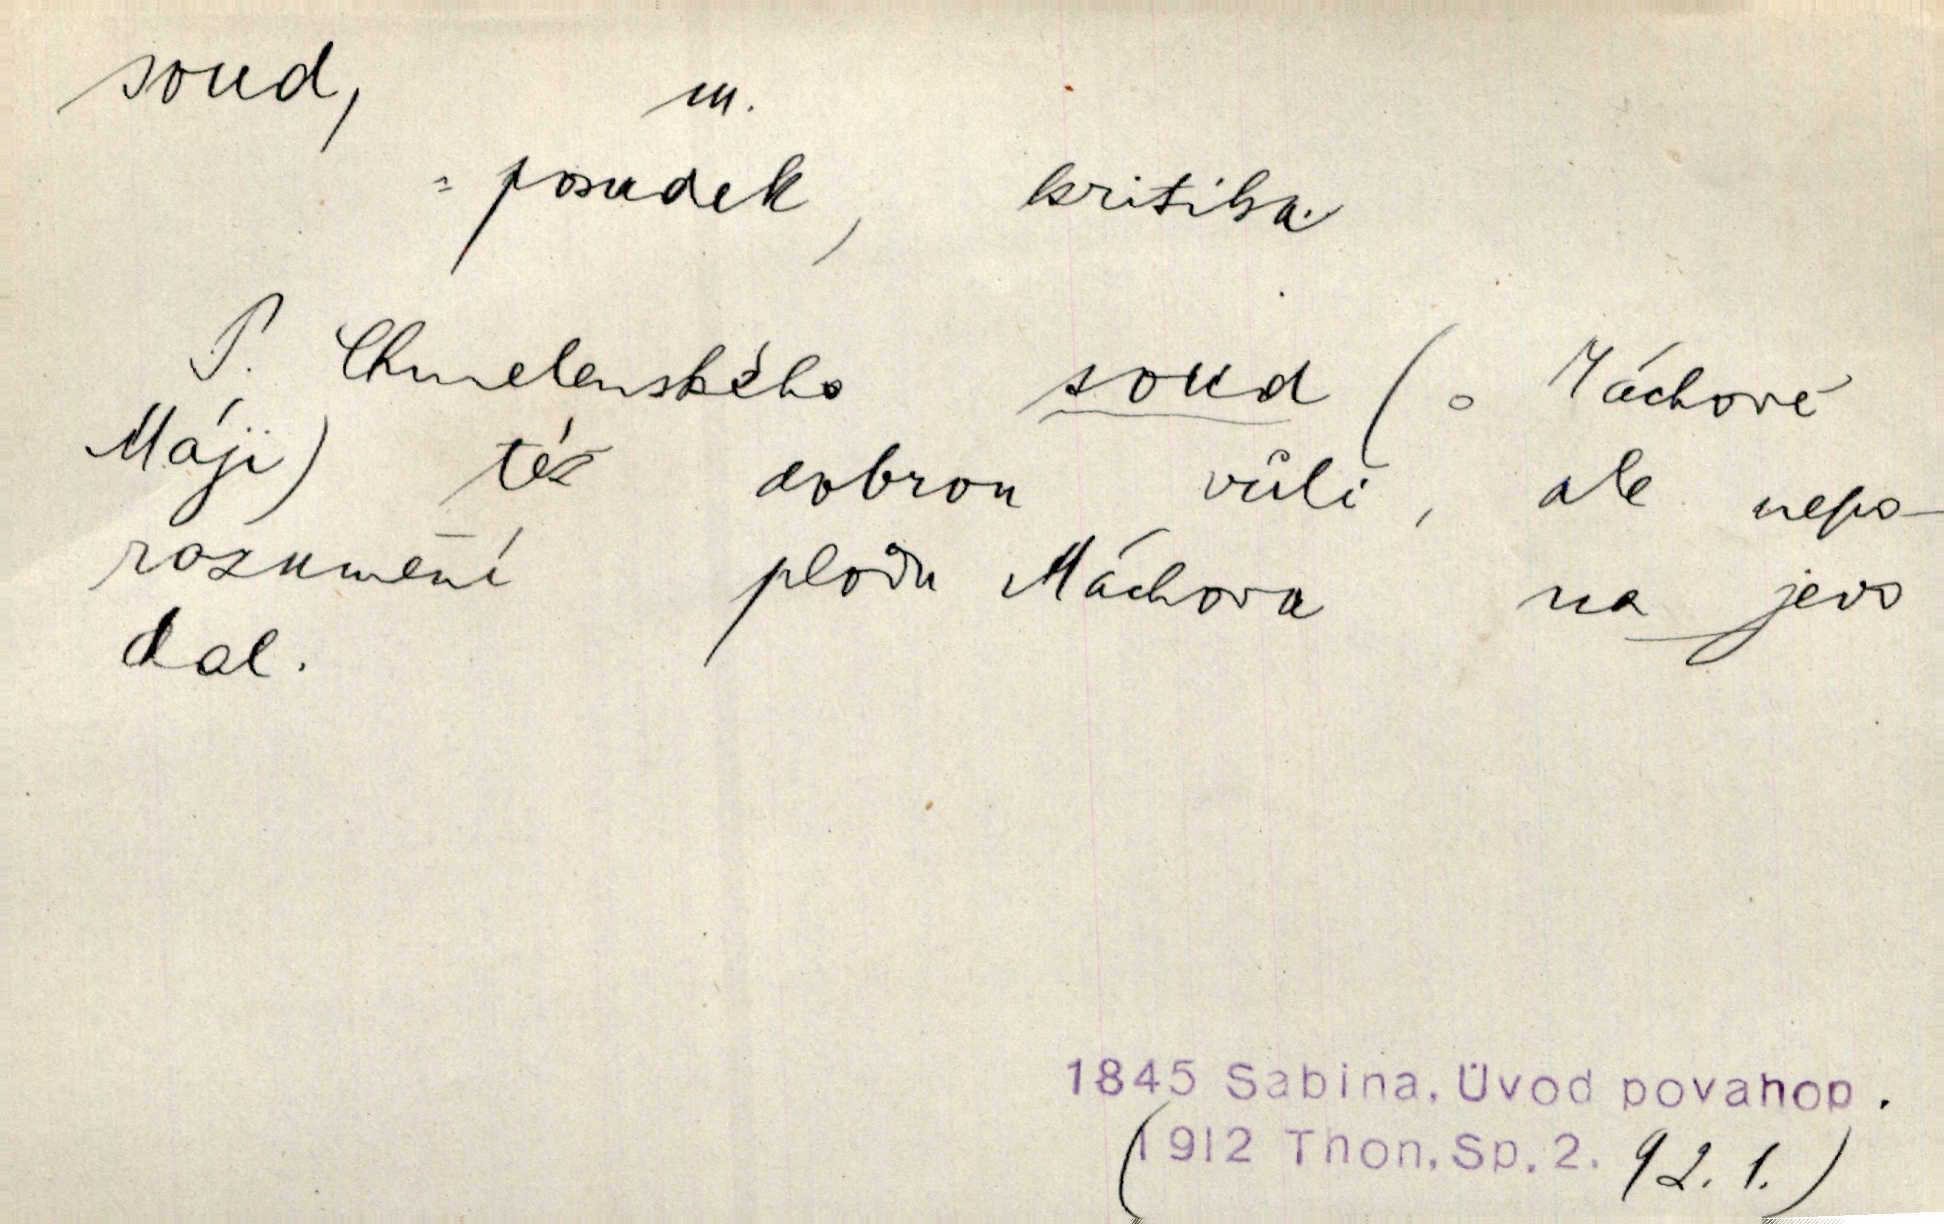 soud, m.
= posudek, kritika.
P. Chmelenského soud (o Máchově
Máji) též dobrou vůli, ale nepo-
rozumění plodu Máchova na jevo
dal.
1845 Sabina. Úvod povahop.
(1912 Thon. Sp. 2. 92. 1.)